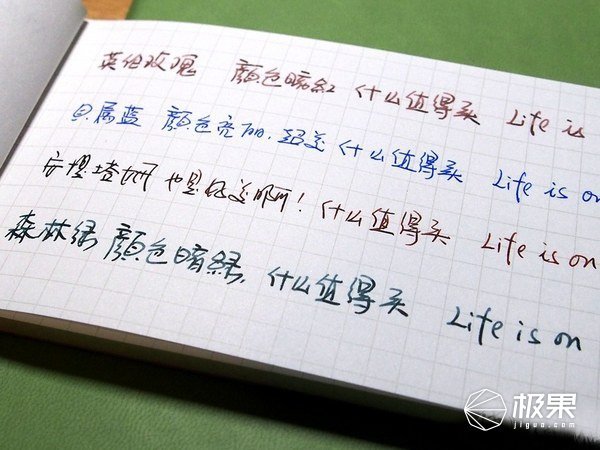 英伦玫瑰 顏色暗红 什么值得买 Life is
贝属蓝 顏色亮丽,超美 什么值得买 Life is on
安提 也是 美 啊! 什么值得买 Life is on
森林绿 顏色暗綠, 什么值得买 Life is on
极果
jiguo.com